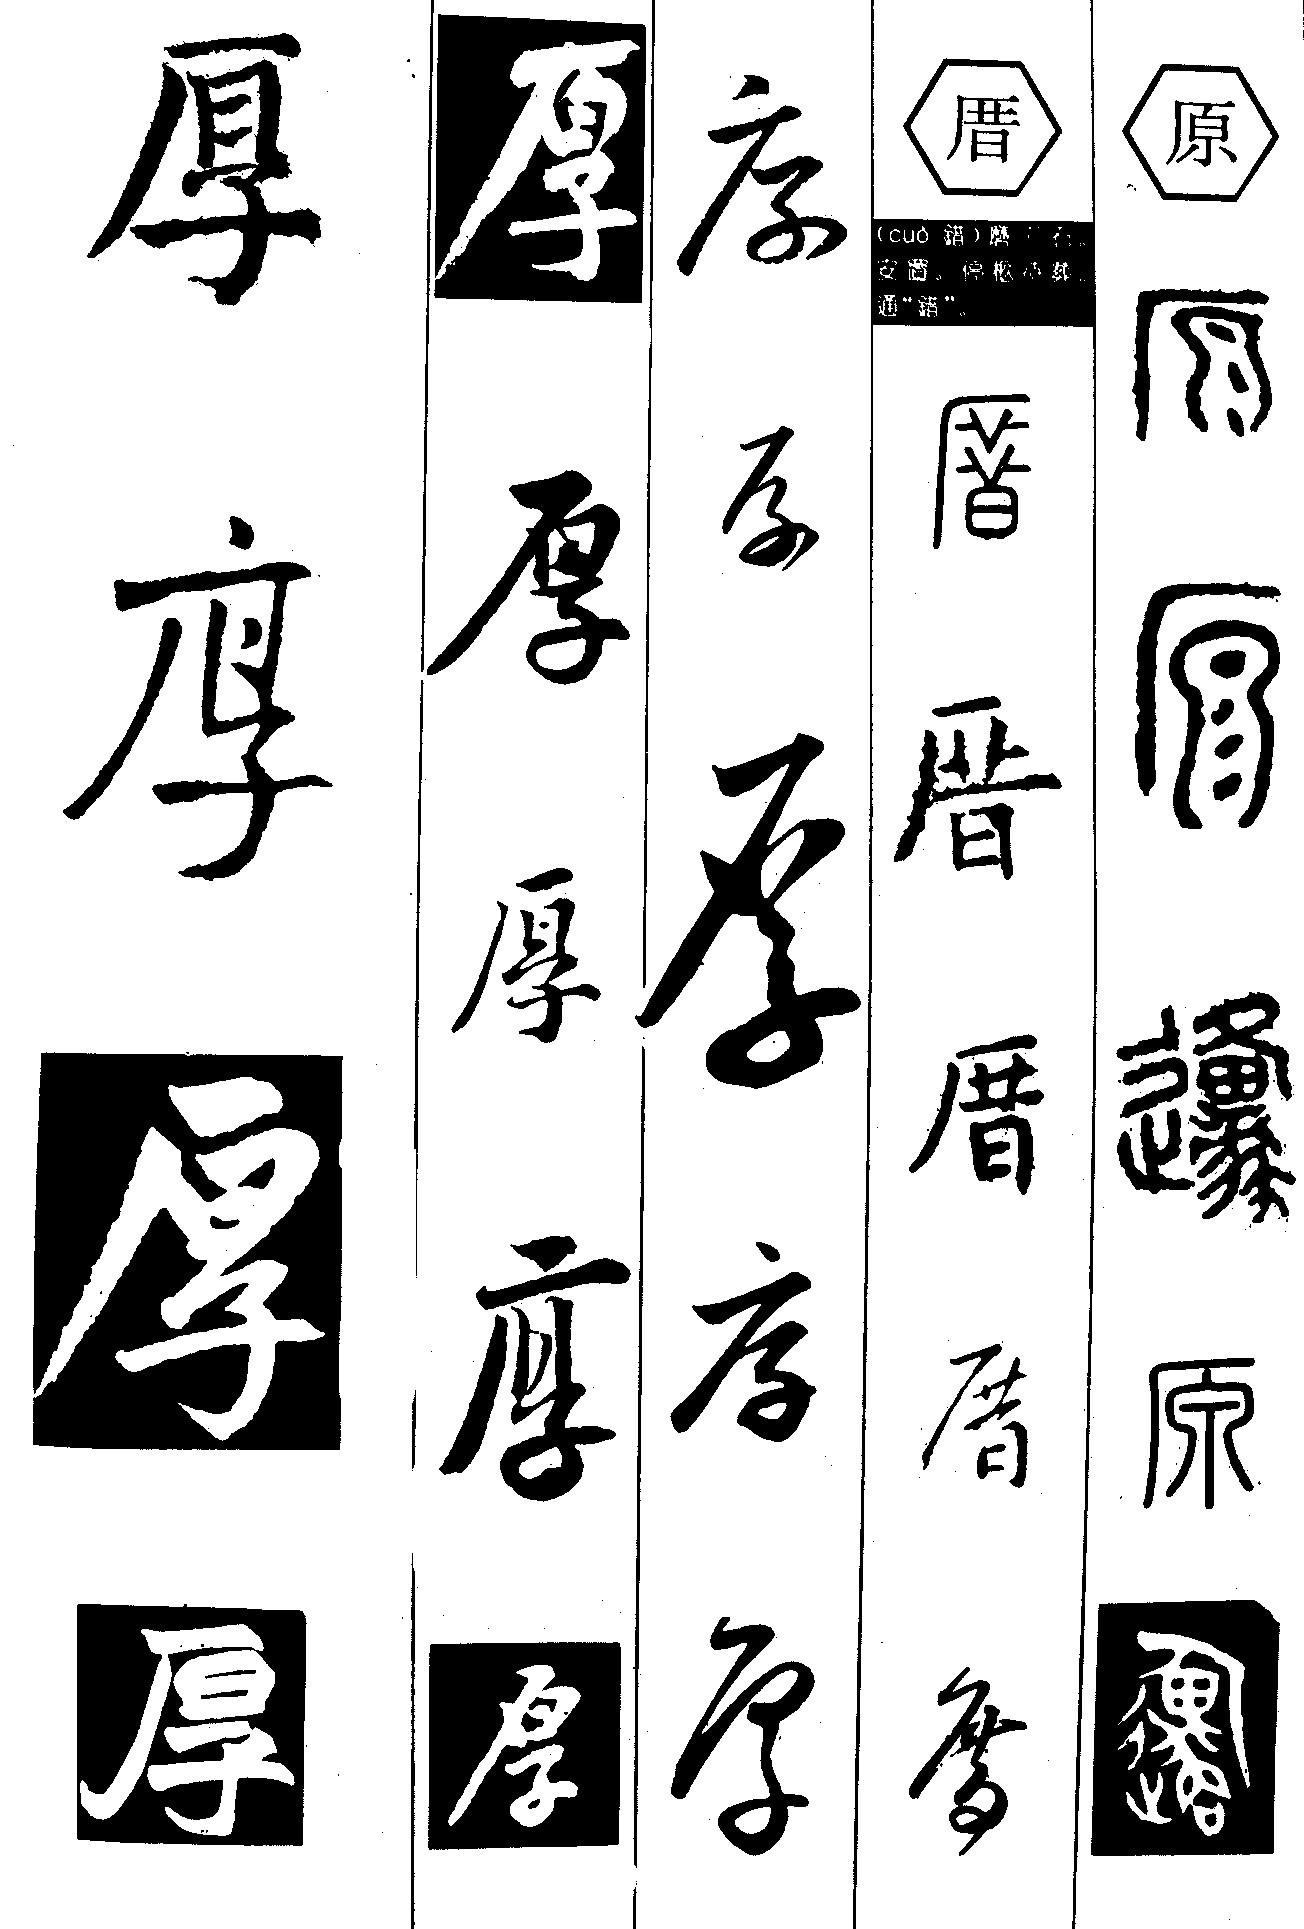 厚
厚
厚
厚
厚
厚
厚
厚
厚
厚
厚
厚
厚
厚
厝
(cuò 錯)磨 石。
安置。停柩待葬。
通“錯”。
厝
厝
厝
厝
厝
原
原
原
邍
原